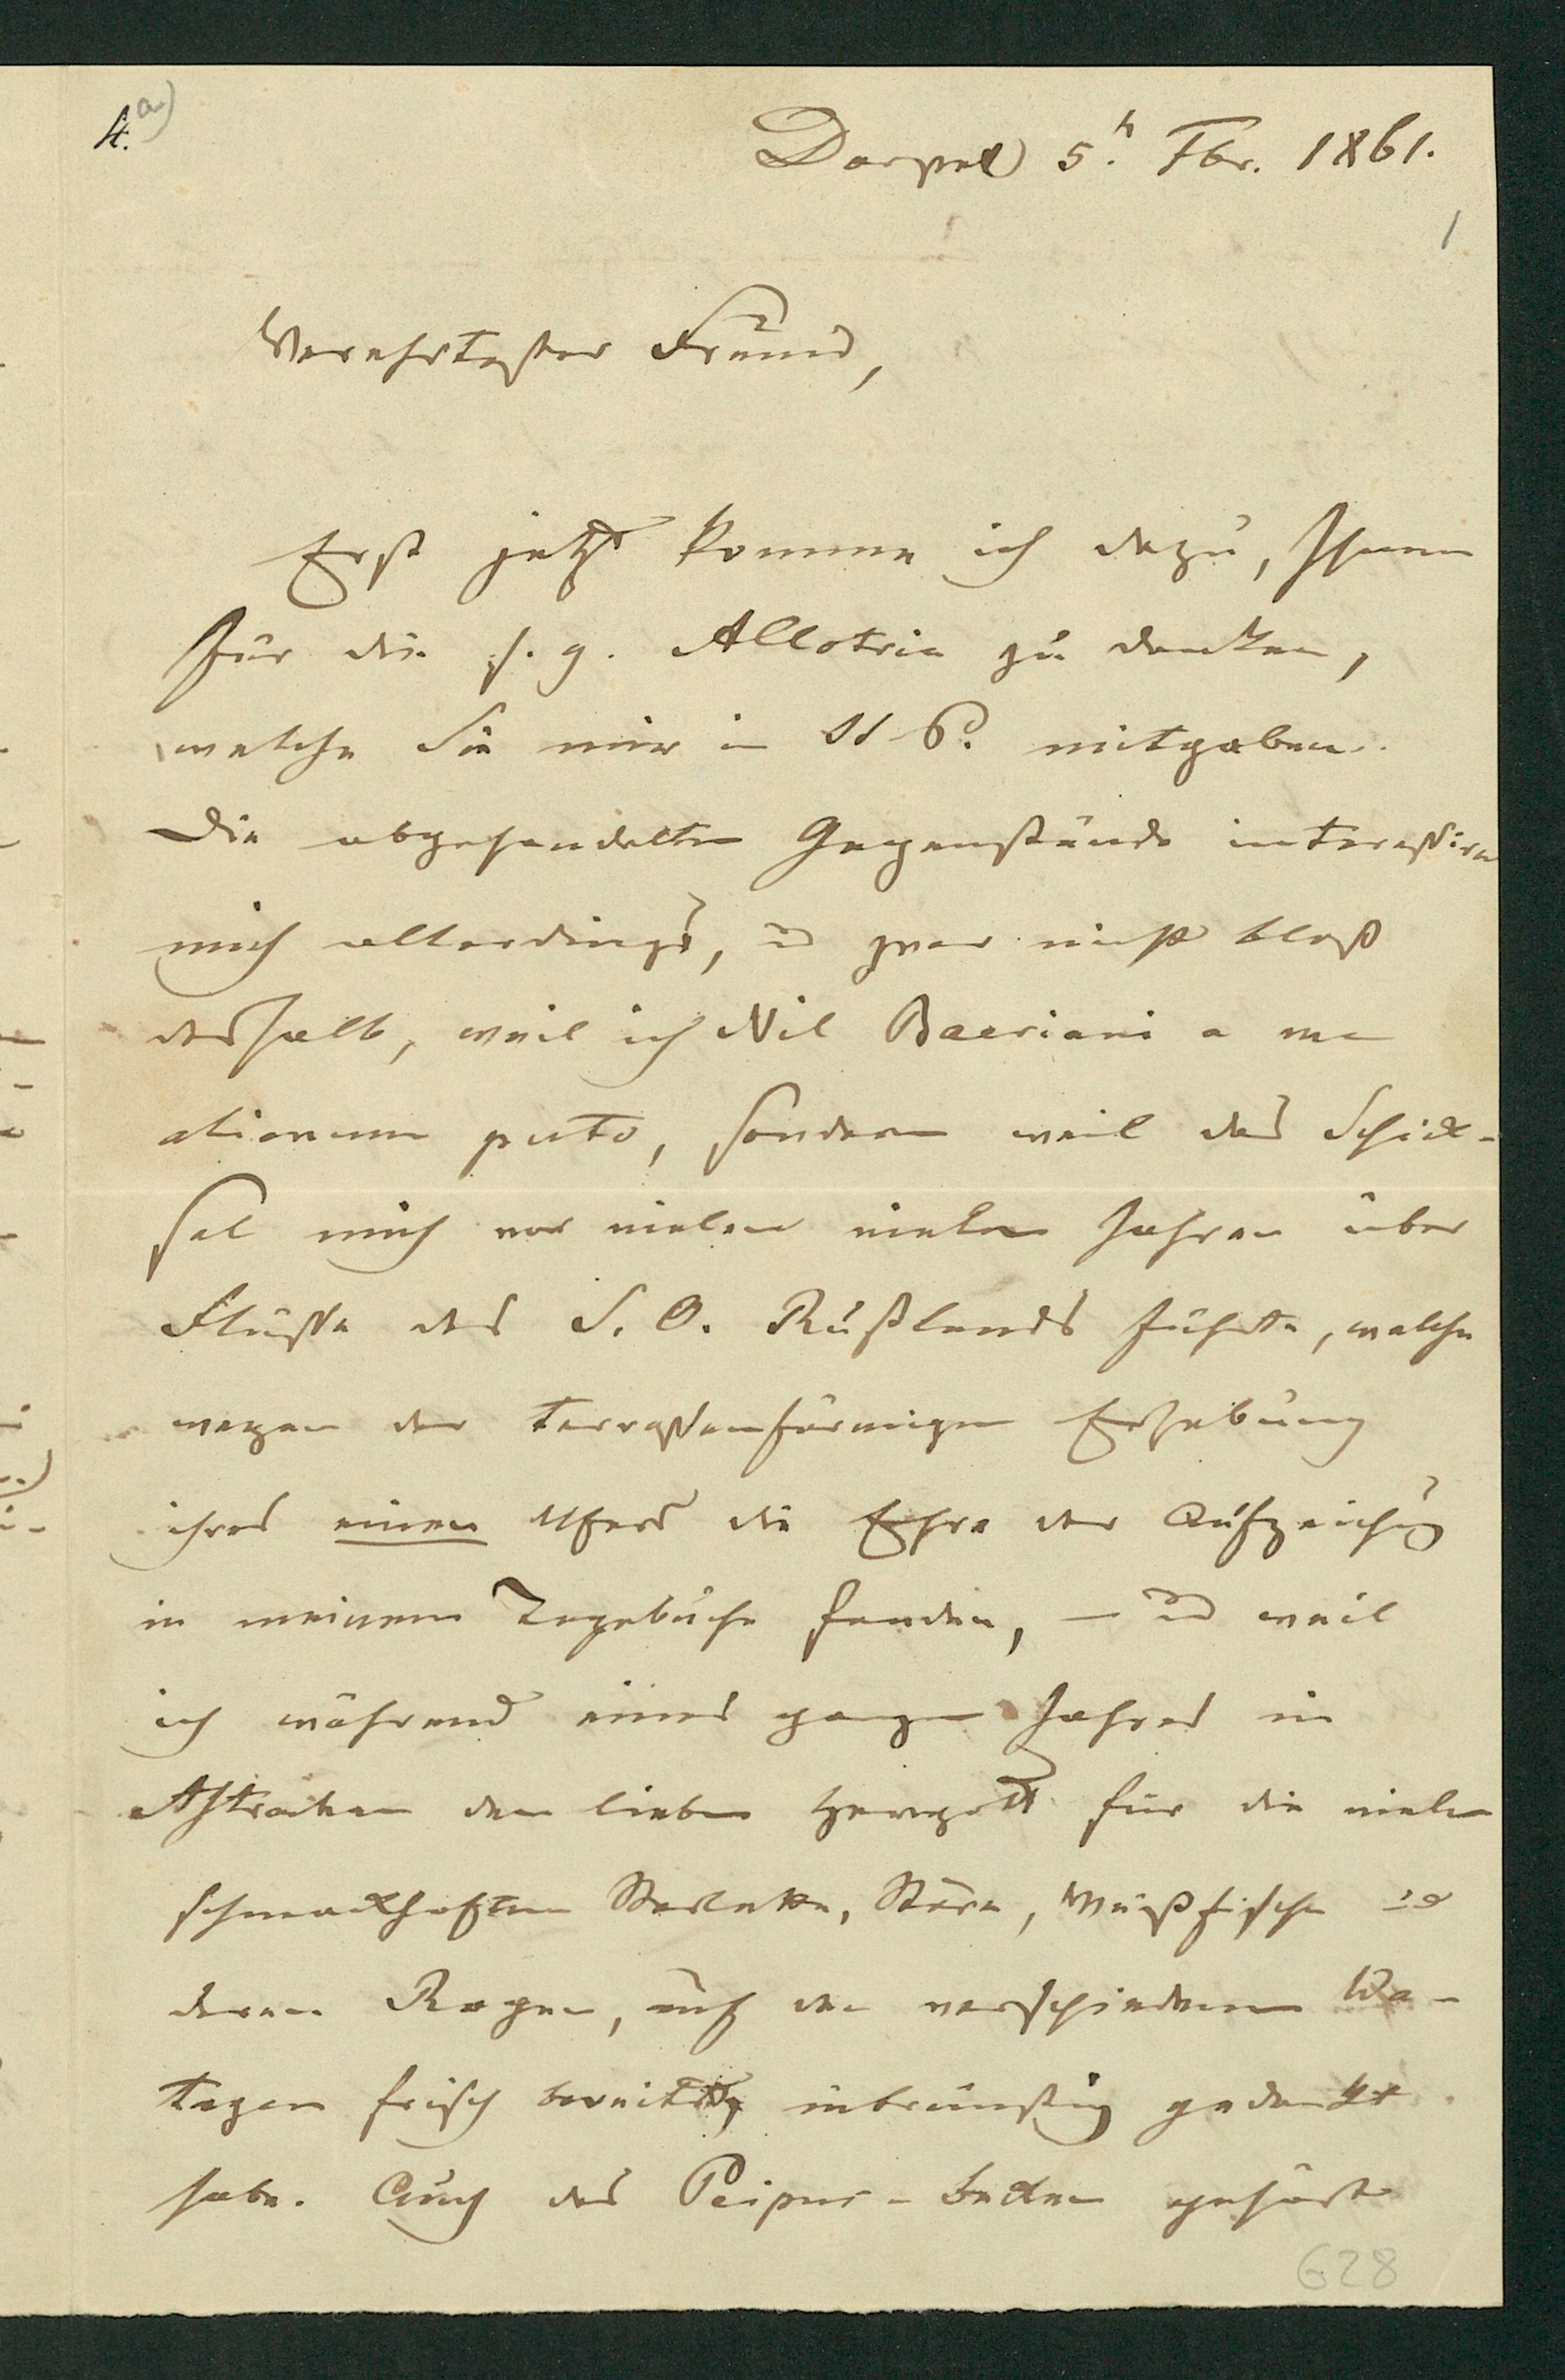 4. a)
Dorpat 5.t Fbr. 1861.
1
Verehrtester Freund,
Erst jetzt komme ich dazu, Ihnen
für die s. g. Allotria zu danken,
welche Sie mir in St P. mitgaben.
Die abgehandelten Gegenstände interessiren
mich allerdings, u zwar nicht bloß
deshalb, weil ich Nil Baeriani a me
alienum puto, sondern weil das Schick-
sal mich vor vielen vielen Jahren über
Flüsse des S. O. Rußlands führte, welche
wegen der terrassenförmigen Erhebung
ihres einen Ufers die Ehre der Aufzeichnung
in meinem Tagebuche fanden, – und weil
ich während eines ganzen Jahres in
Astrachan dem lieben Herrgott für die vielen
schmackhaften Sterlette, Störe, Weißfische u
deren Rogen, auf den verschiedenen Wa-
tagen frisch bereitet, inbrünstig gedankt
habe. Auch das Peipus-becken gehört
628